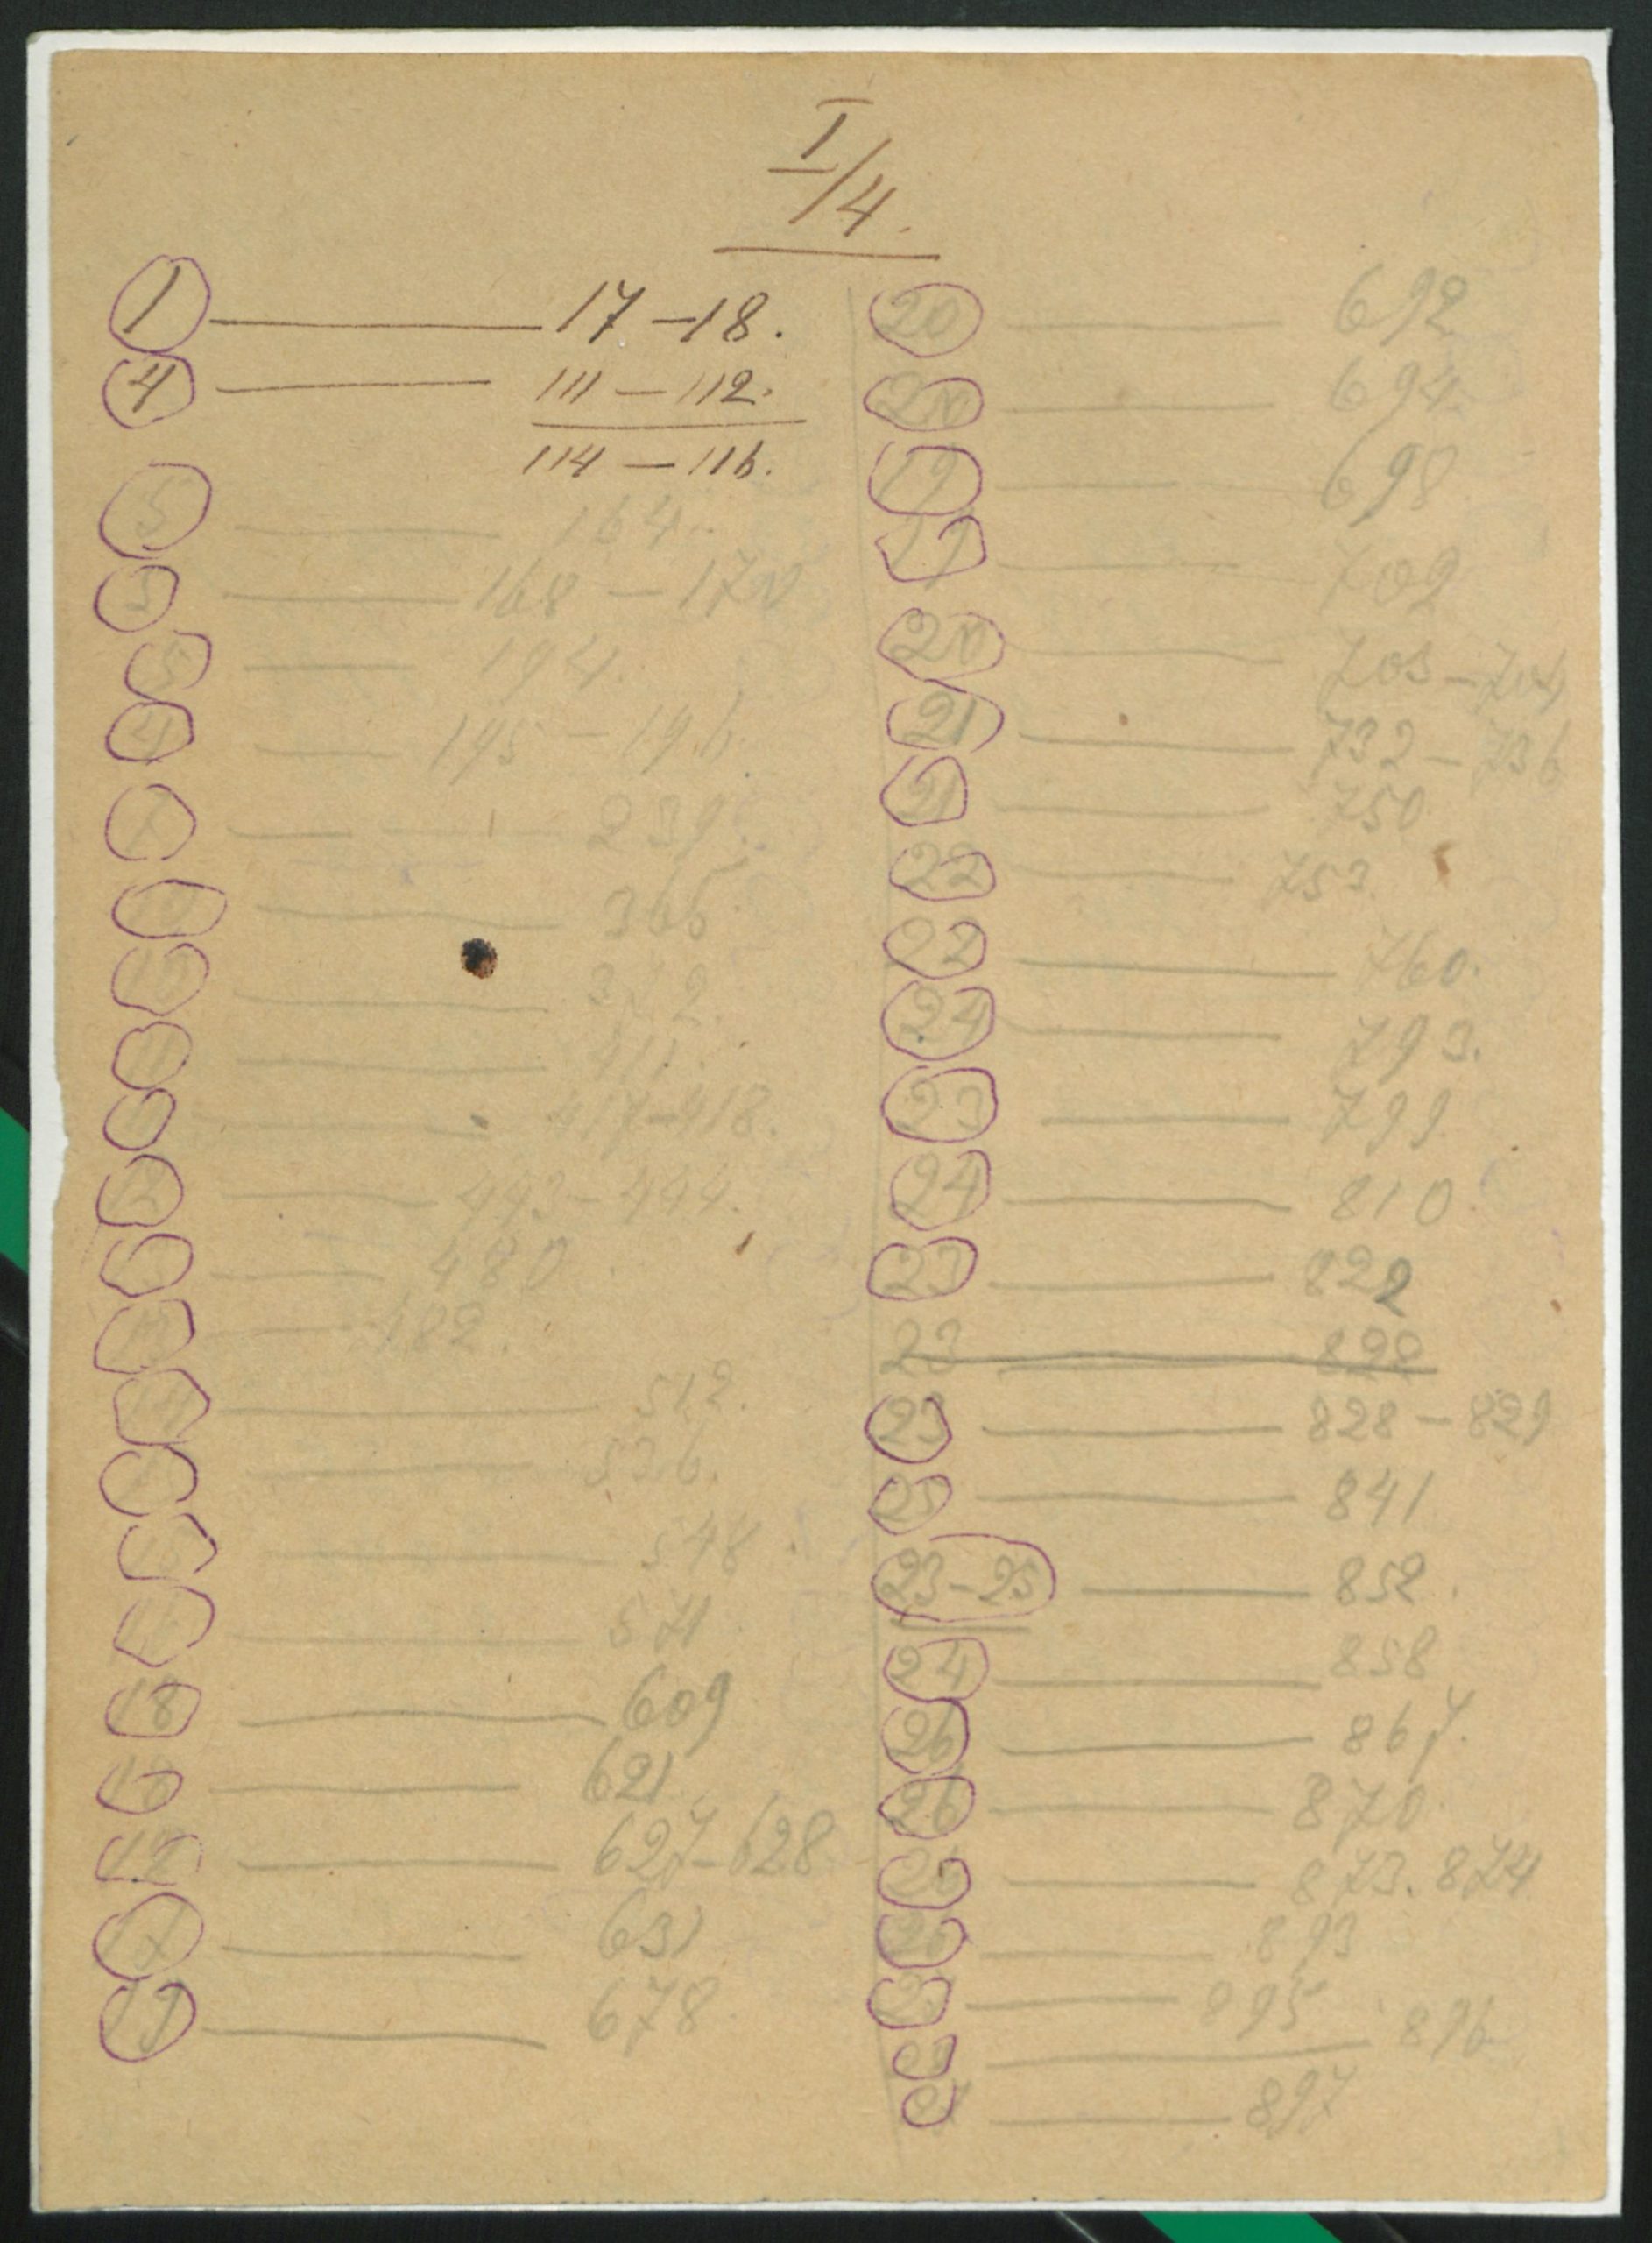 I/4.
1 — 17 – 18.
4 — 111 – 112.
114 – 116.
5 — 164.
5 — 168 – 170
5 — 194.
4 — 195 – 196.
239.
366
417–418.
12 — 443–444.
480
482.
14 — 512.
536.
548
571
18 — 609
621
627–628
17 — 631
19 — 678
20 — 692
20 — 694.
19 — 698
19 — 702
20 — 703–704
21 — 732 – 736
21 — 750
22 — 753.
22 — 760.
24 — 793.
23 — 799
24 — 810.
23 — 822
23 — 822
23 — 828 – 829
25 — 841
23–25 — 852.
24 — 858
26 — 867.
26 — 870.
26 — 873. 874
26 — 893
895
896
897